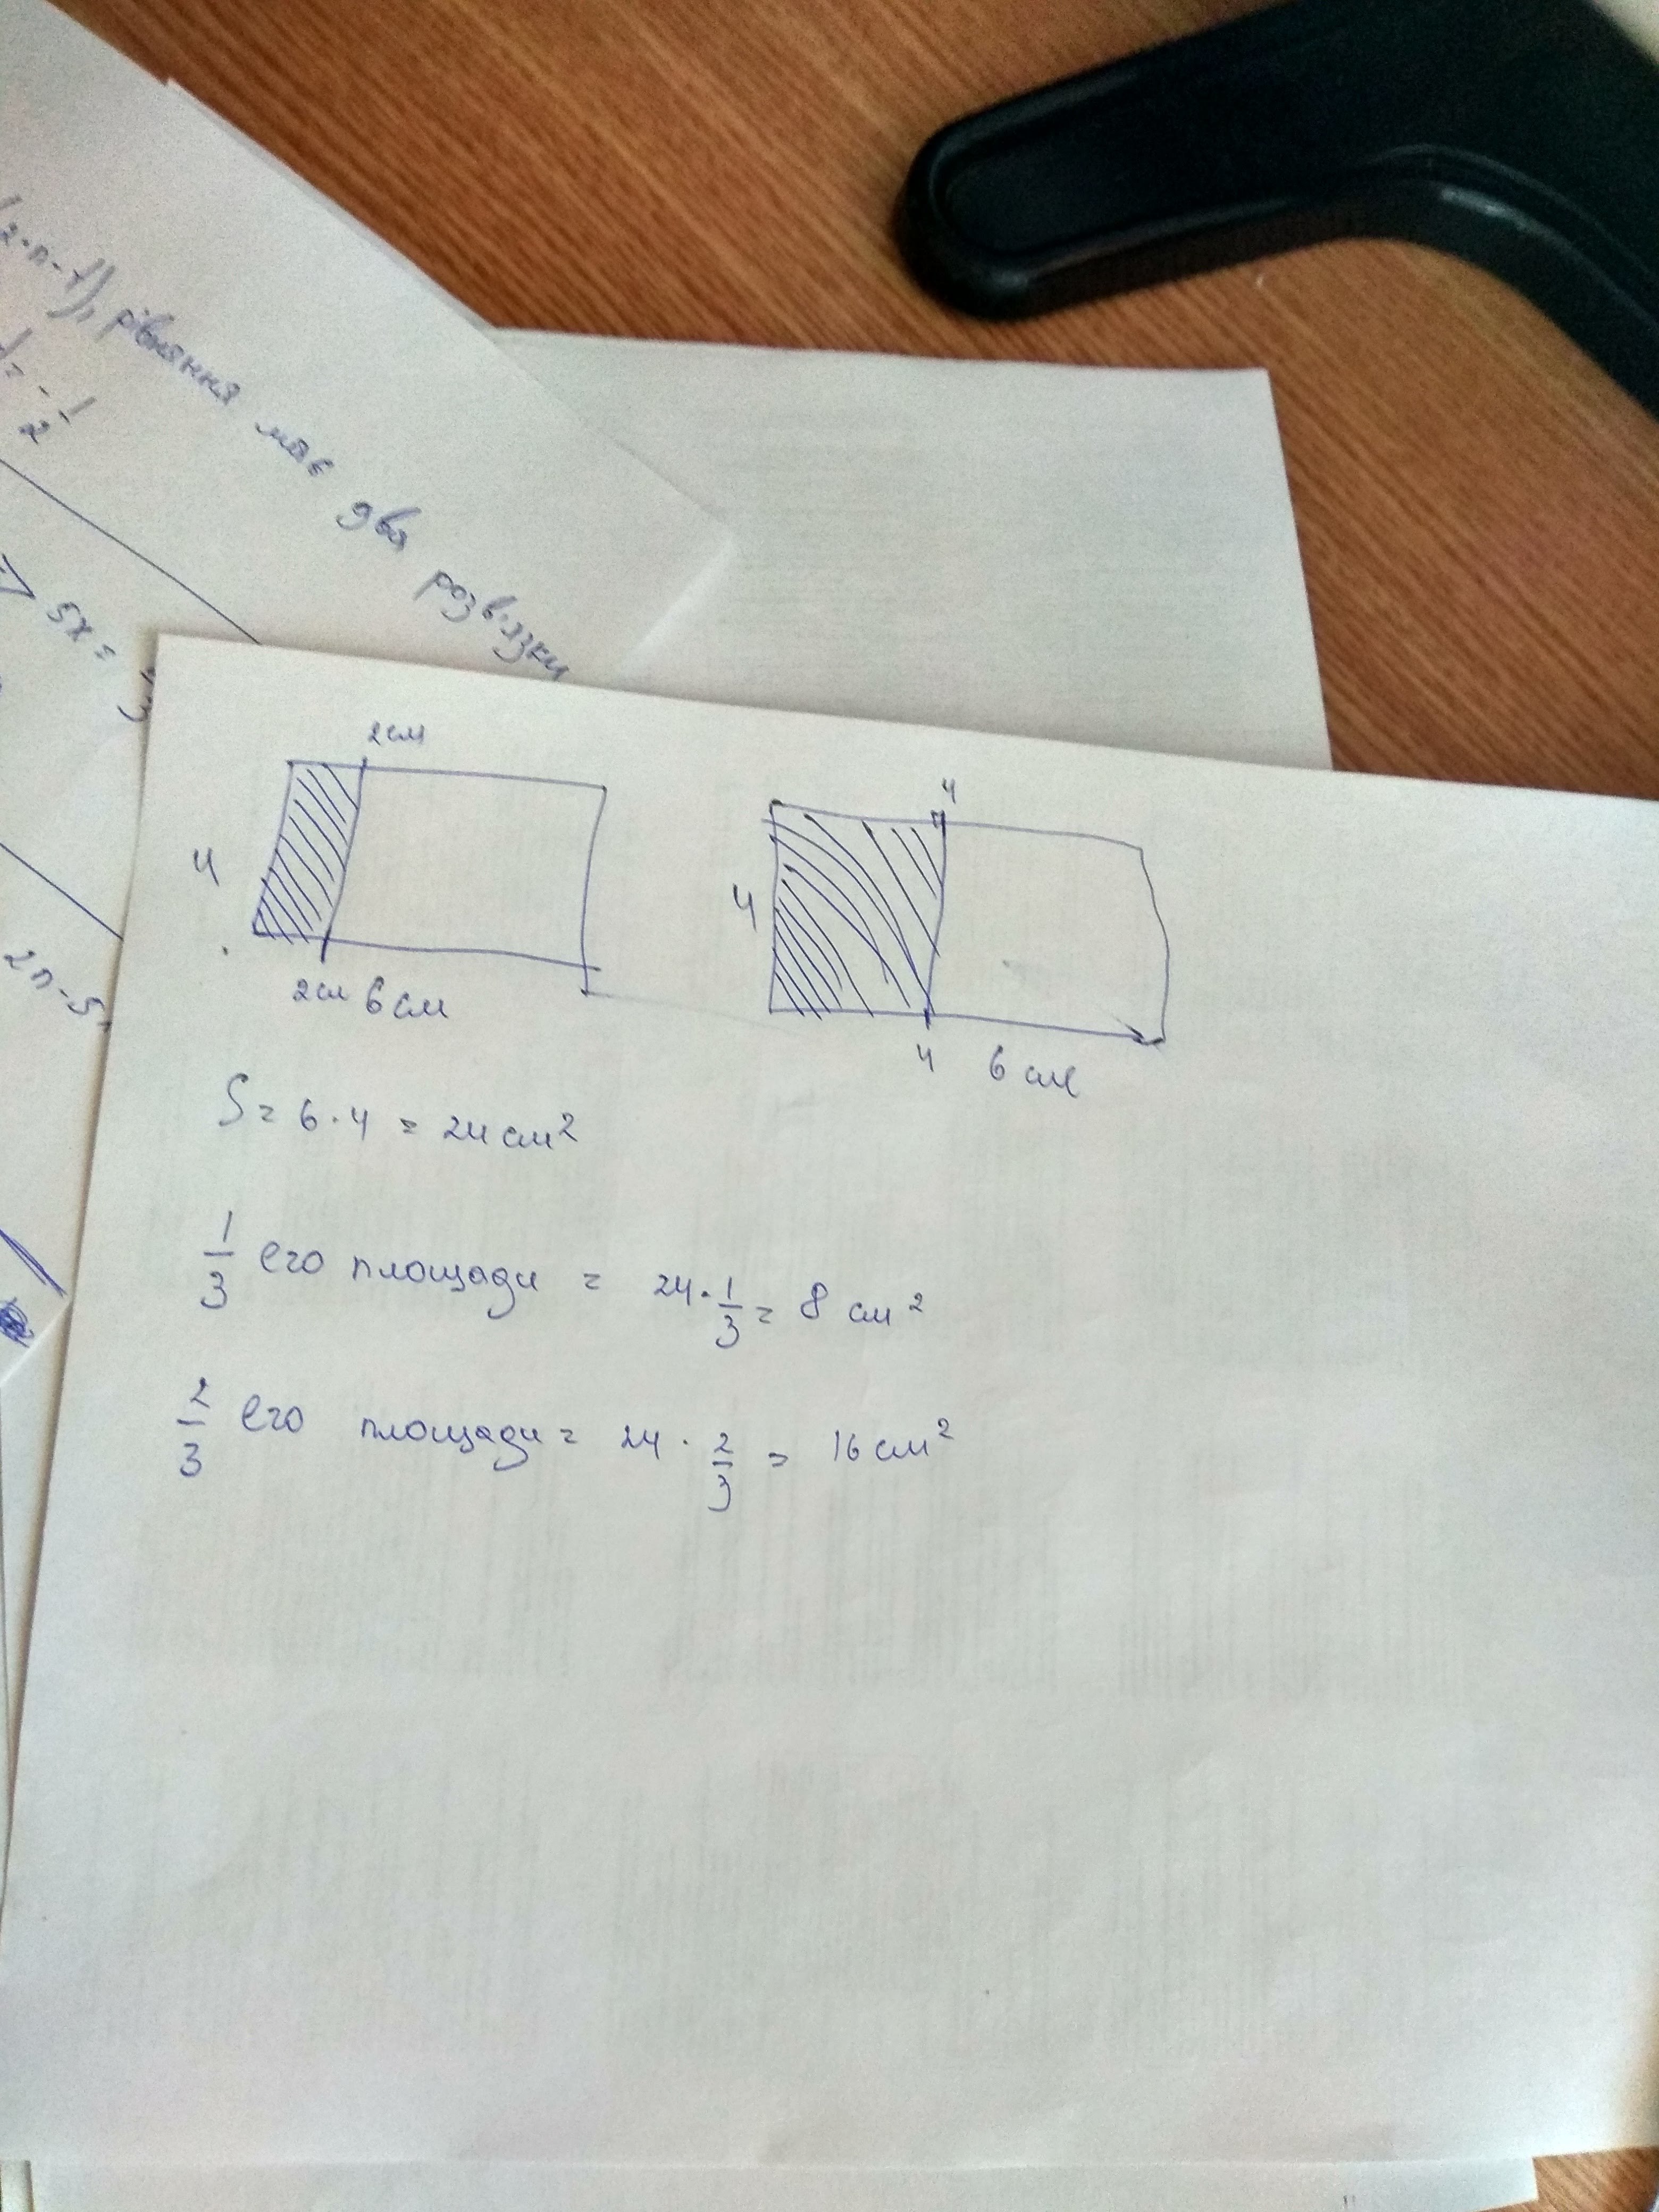 2·n-1)), рівняння має два розв'язки
= -1/2
=> 5x =
2n-5
2см
4
2см 6см
4
4
4 6 см
S = 6·4 = 24 см²
1/3 его площади = 24·1/3 = 8 см²
2/3 его площади = 24·2/3 = 16 см²